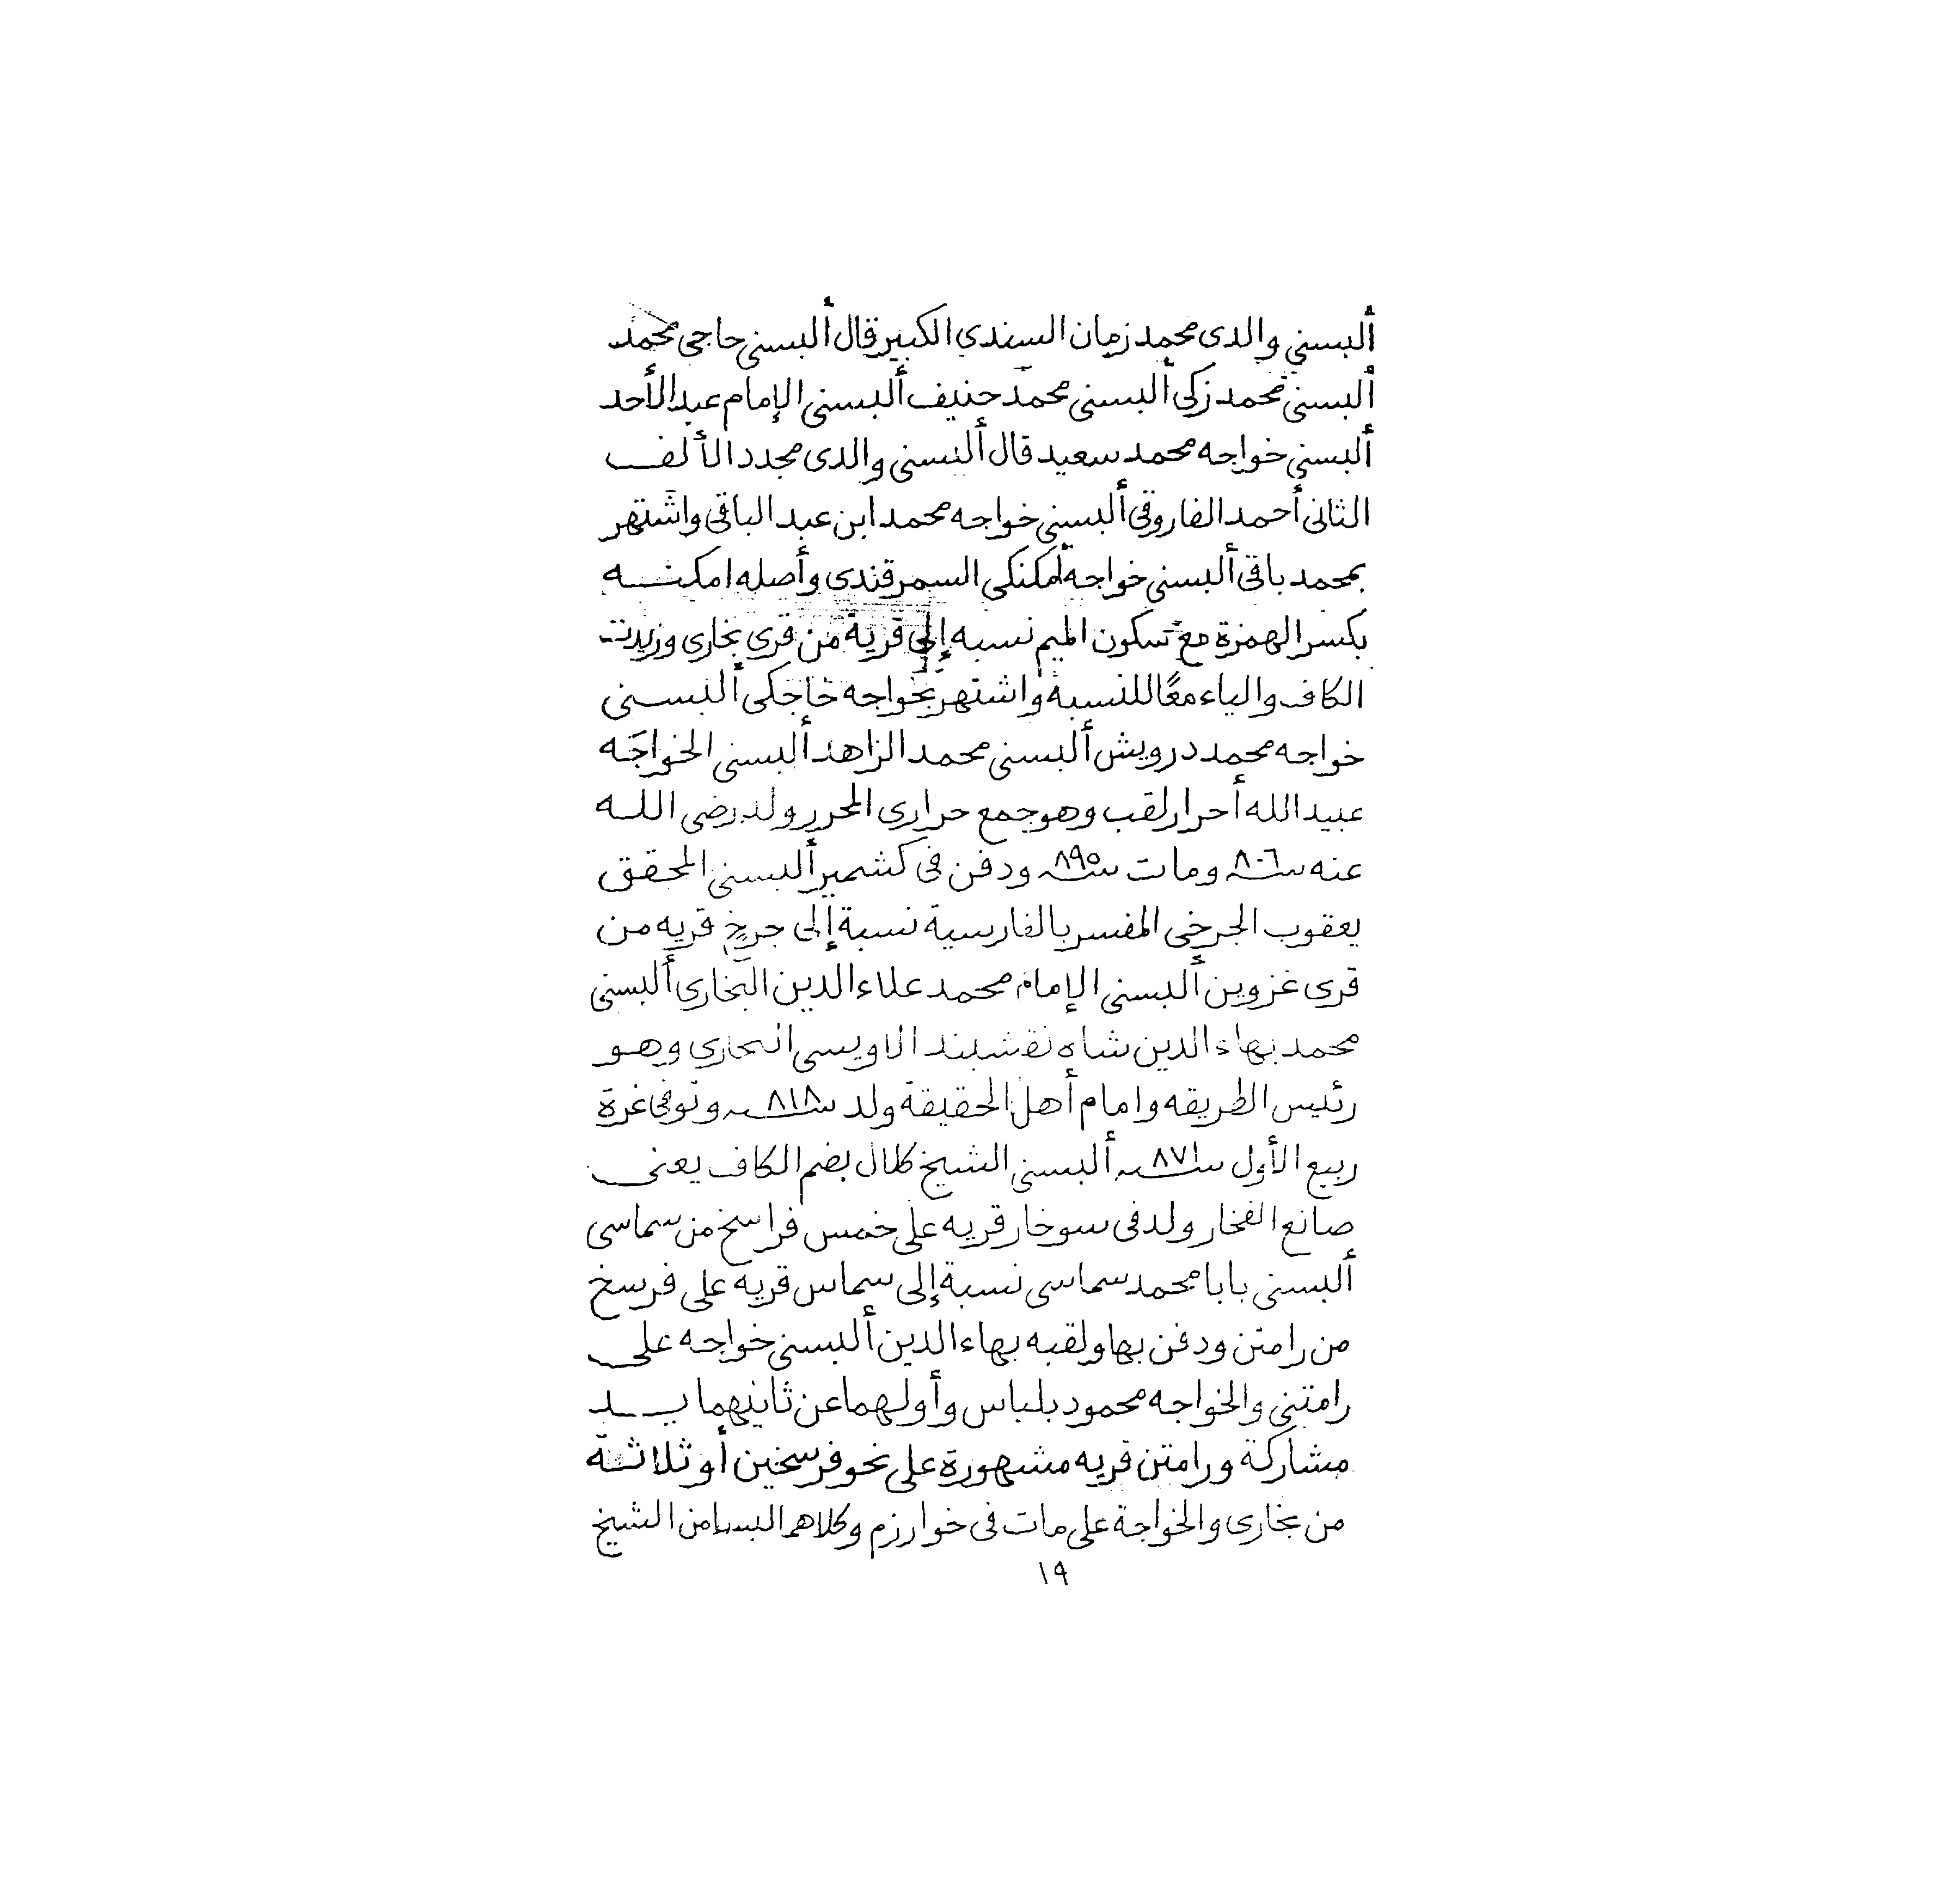 ألبسني والدى محمد زمان السندي الكبير قال ألبسنى حاجى محمد
ألبسنى محمد زكى ألبسنى محمد حنيف ألبسنى الإمام عبد الأحد
ألبسني خواجه محمد سعيد قال ألبسنى والدى مجدد الألف
الثانى أحمد الفاروقى ألبسنى خواجه محمد ابن عبد الباقى واشتهر
بمحمد باقى ألبسنى خواجه أمكنكى السمرقندى وأصله امكنه
بكسر الهمزة مع سكون الميم نسبه إلى قرية من قرى بخارى وزيدت
الكاف والياء معًا للنسبة واشتهر بخواجه خاجكى ألبسنى
خواجه محمد درويش ألبسنى محمد الزاهد ألبسنى الخواجه
عبيد الله أحرار لقب وهو جمع حرارى المحرر ولد رضى الله
عنه سنة ٨٠٦ ومات سنة ٨٩٥ ودفن فى كشمير ألبسنى المحقق
يعقوب الجرخى المفسر بالفارسية نسبة إلى جرخ قريه من
قرى غزوين ألبسنى الإمام محمد علاء الدين البخارى ألبسنى
محمد بهاء الدين شاه نقشبند الاويسى البخارى وهو
رئيس الطريقه وامام أهل الحقيقة ولد سنة ٨١٨ وتوفى غرة
ربيع الأول سنة ٨٧١ ألبسنى الشيخ كلال بضم الكاف يعنى
صانع الفخار ولد فى سوخار قريه على خمس فراسخ من سماسى
ألبسنى بابا محمد سماسى نسبة إلى سماس قرية على فرسخ
من رامتن ودفن بها ولقبه بهاء الدين ألبسنى خواجه على
رامتنى والخواجه محمود بلباس وأولهما عن ثانيهما بيد
مشاركة ورامتن قريه مشهورة على نحو فرسخين أو ثلاثة
من بخارى والخواجة على مات فى خوارزم وكلاهما لبسا من الشيخ
١٩